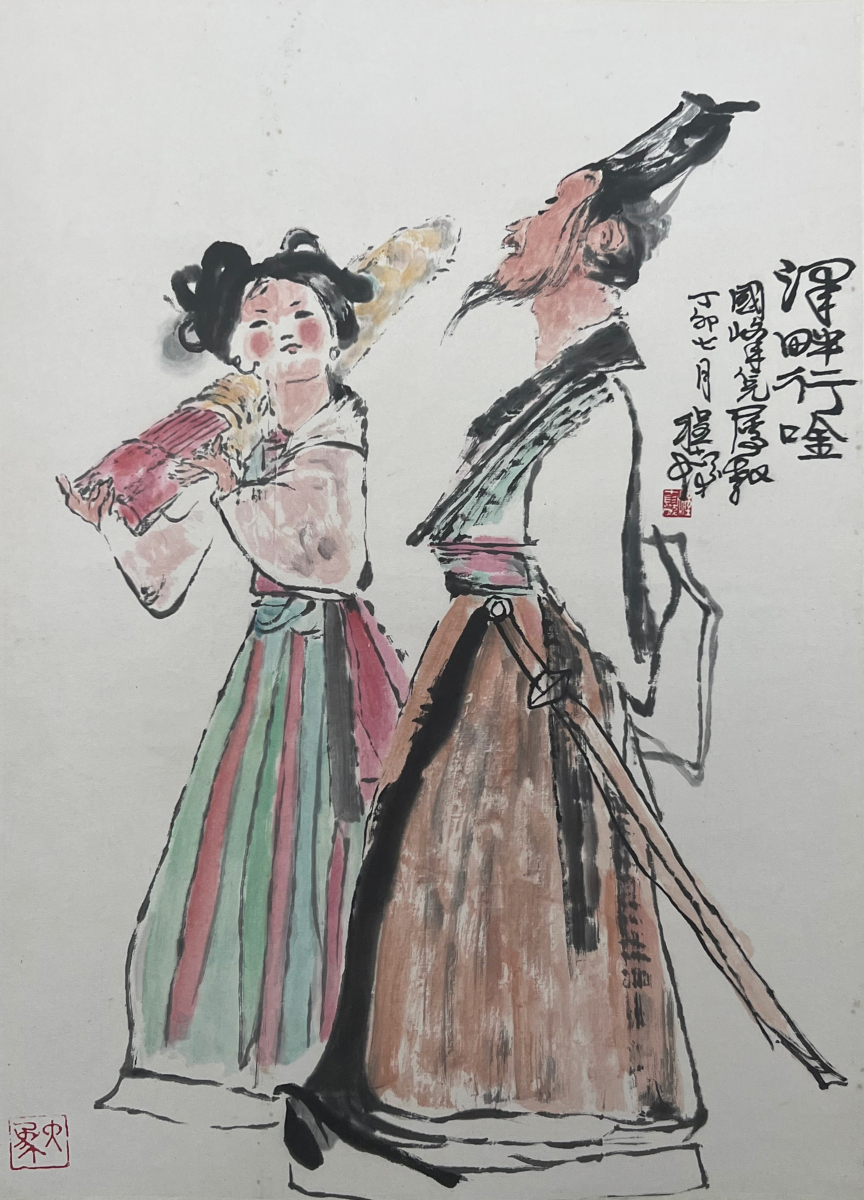 澤畔行唫
國峰軍兄屬教
丁卯七月 程十髮